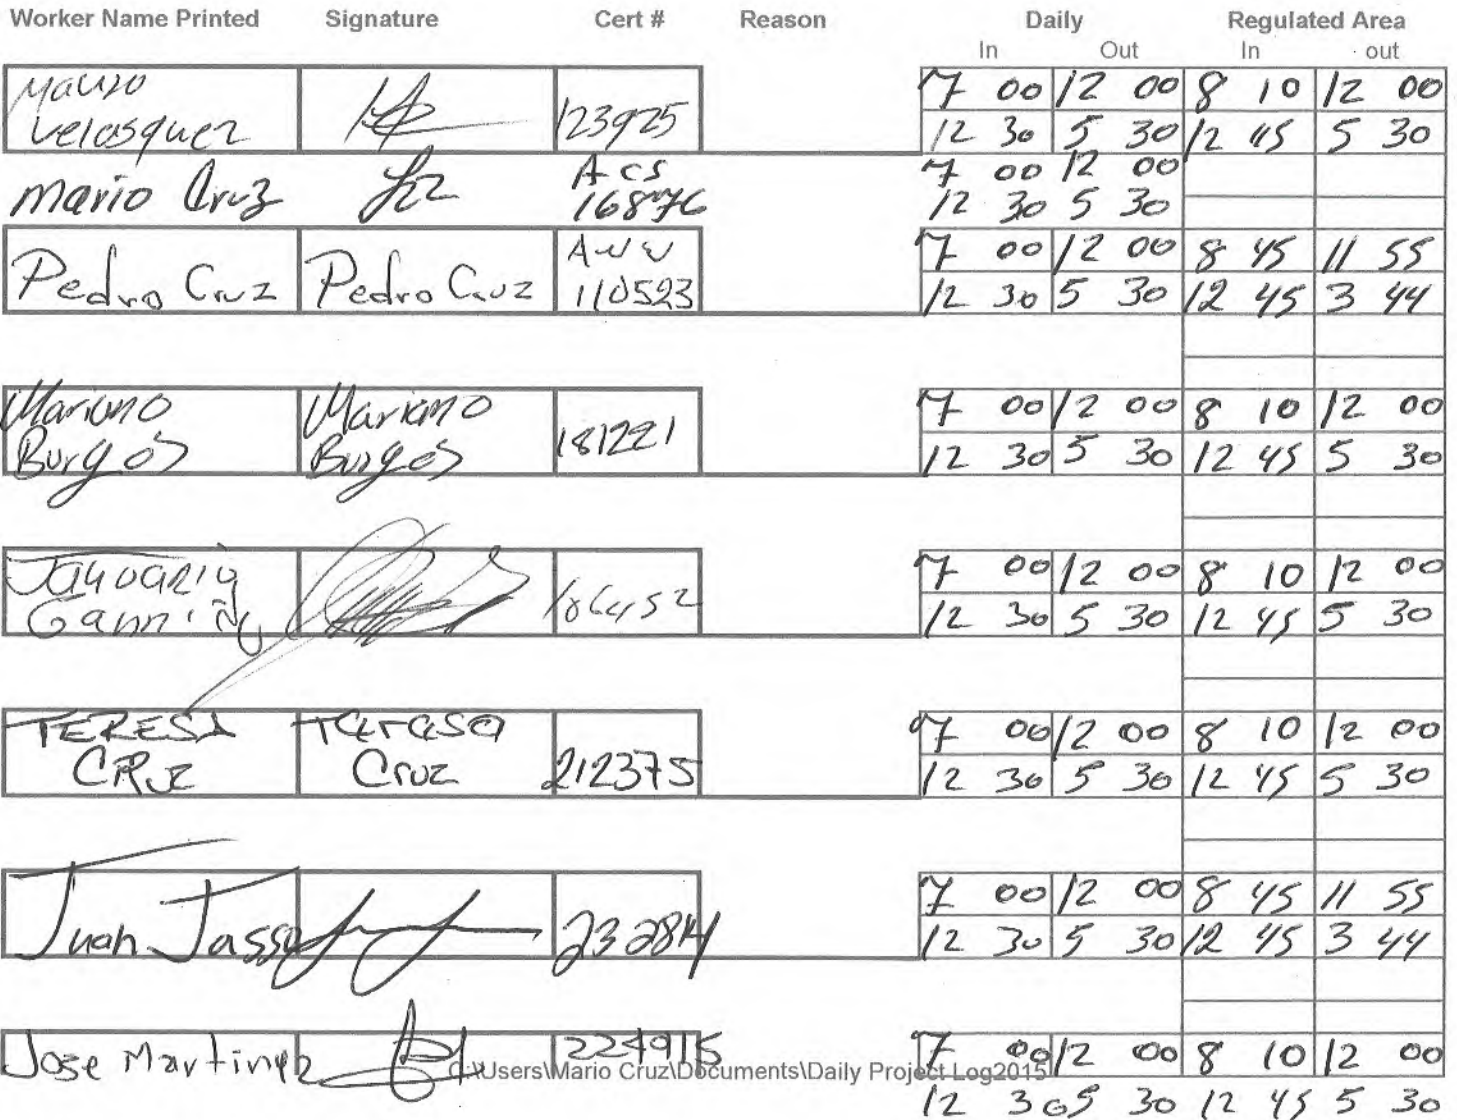 Worker Name Printed Signature Cert # Reason Daily Regulated Area
In Out In out
Mauro Velasquez 123925 7 00 12 00 8 10 12 00
12 30 5 30 12 45 5 30
Mario Cruz ACS 16876 7 00 12 00
12 30 5 30
Pedro Cruz Pedro Cruz 110523 7 00 12 00 8 45 11 55
12 30 5 30 12 45 3 44
Mariano Burgos Mariano Burgos 181221 7 00 12 00 8 10 12 00
12 30 5 30 12 45 5 30
7 00 12 00 8 10 12 00
12 30 5 30 12 45 5 30
TERESA CRUZ Teresa Cruz 212375 7 00 12 00 8 10 12 00
12 30 5 30 12 45 5 30
Juan 232814 7 00 12 00 8 45 11 55
12 30 5 30 12 45 3 44
Jose Martinez 224915 7 00 12 00 8 10 12 00
C:\Users\Mario Cruz\Documents\Daily Project Log2015
12 30 5 30 12 45 5 30